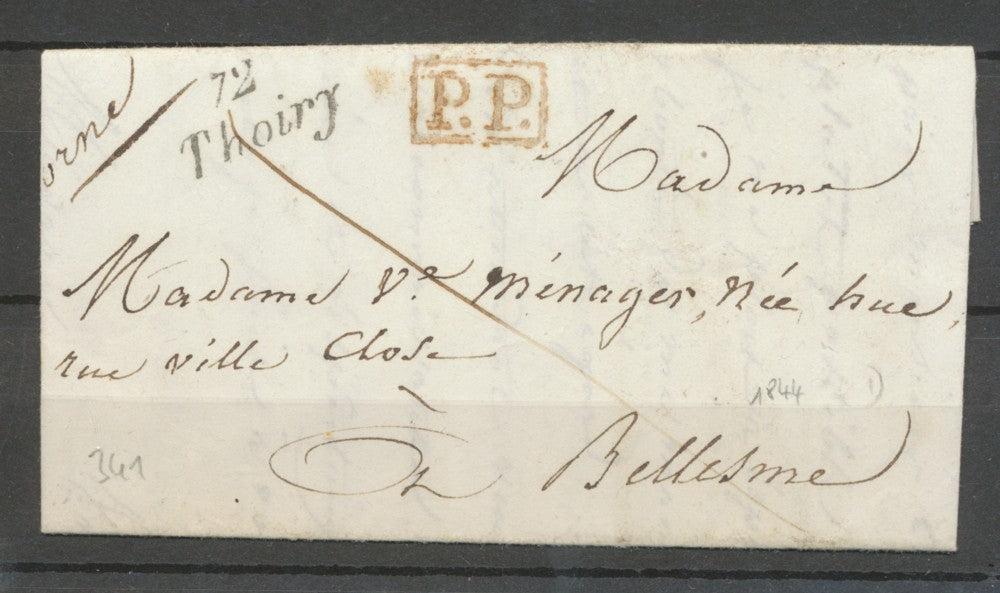 orne
72
Thoiry
P.P.
Madame
Madame Ve Ménager, Née hue,
rue ville Close
à Bellesme
1844 1)
341